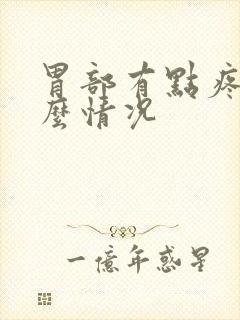 胃部有點疼
麼情況
一億年惑星